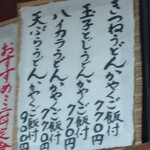 きつねうどん、かやくご飯付
770円
玉子とじうどん、かやくご飯付
770円
ハイカラうどん、かやくご飯付
770円
天ぷらうどん、かやくご飯付
900円
おすすめ